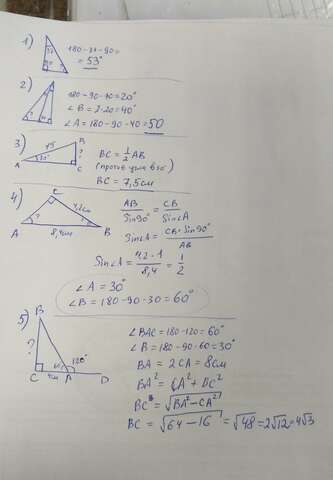 1)
180-37-90=
= 53°
2)
180-90-70=20°
∠B=2·20=40°
∠A=180-90-40=50
3)
15
B
?
A
30°
C
BC = 1/2 AB
(против угла в 30°)
BC = 7,5см
4)
C
4,2см
A
?
?
B
8,4см
AB/Sin90° = CB/Sin∠A
Sin∠A = CB·Sin90°/AB
Sin∠A = 4,2·1/8,4 = 1/2
∠A = 30°
∠B = 180-90-30=60°
5)
B
?
60°
120°
C
4см
A
D
∠BAC=180-120=60°
∠B=180-90-60=30°
BA = 2CA=8см
BA² = CA²+BC²
BC = √BA²-CA²
BC = √64-16 = √48=2√12=4√3